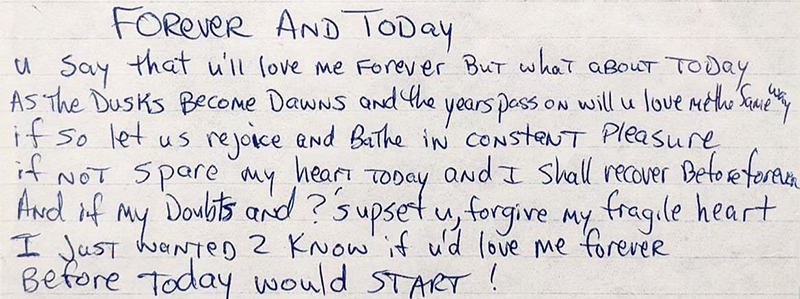 FOREVER AND TODAY
u say that u'll love me Forever But what ABOUT TODAY
AS The DUSKS Become DAWNS and the years pass on will u love me the same way
if so let us rejoice and Bathe in CONSTANT Pleasure
if NOT spare my heart TODAY and I shall recover Before forever
And if my Doubts and ?'s upset u, forgive my fragile heart
I Just WANTED 2 KNOW if u'd love me forever
Before Today would START !